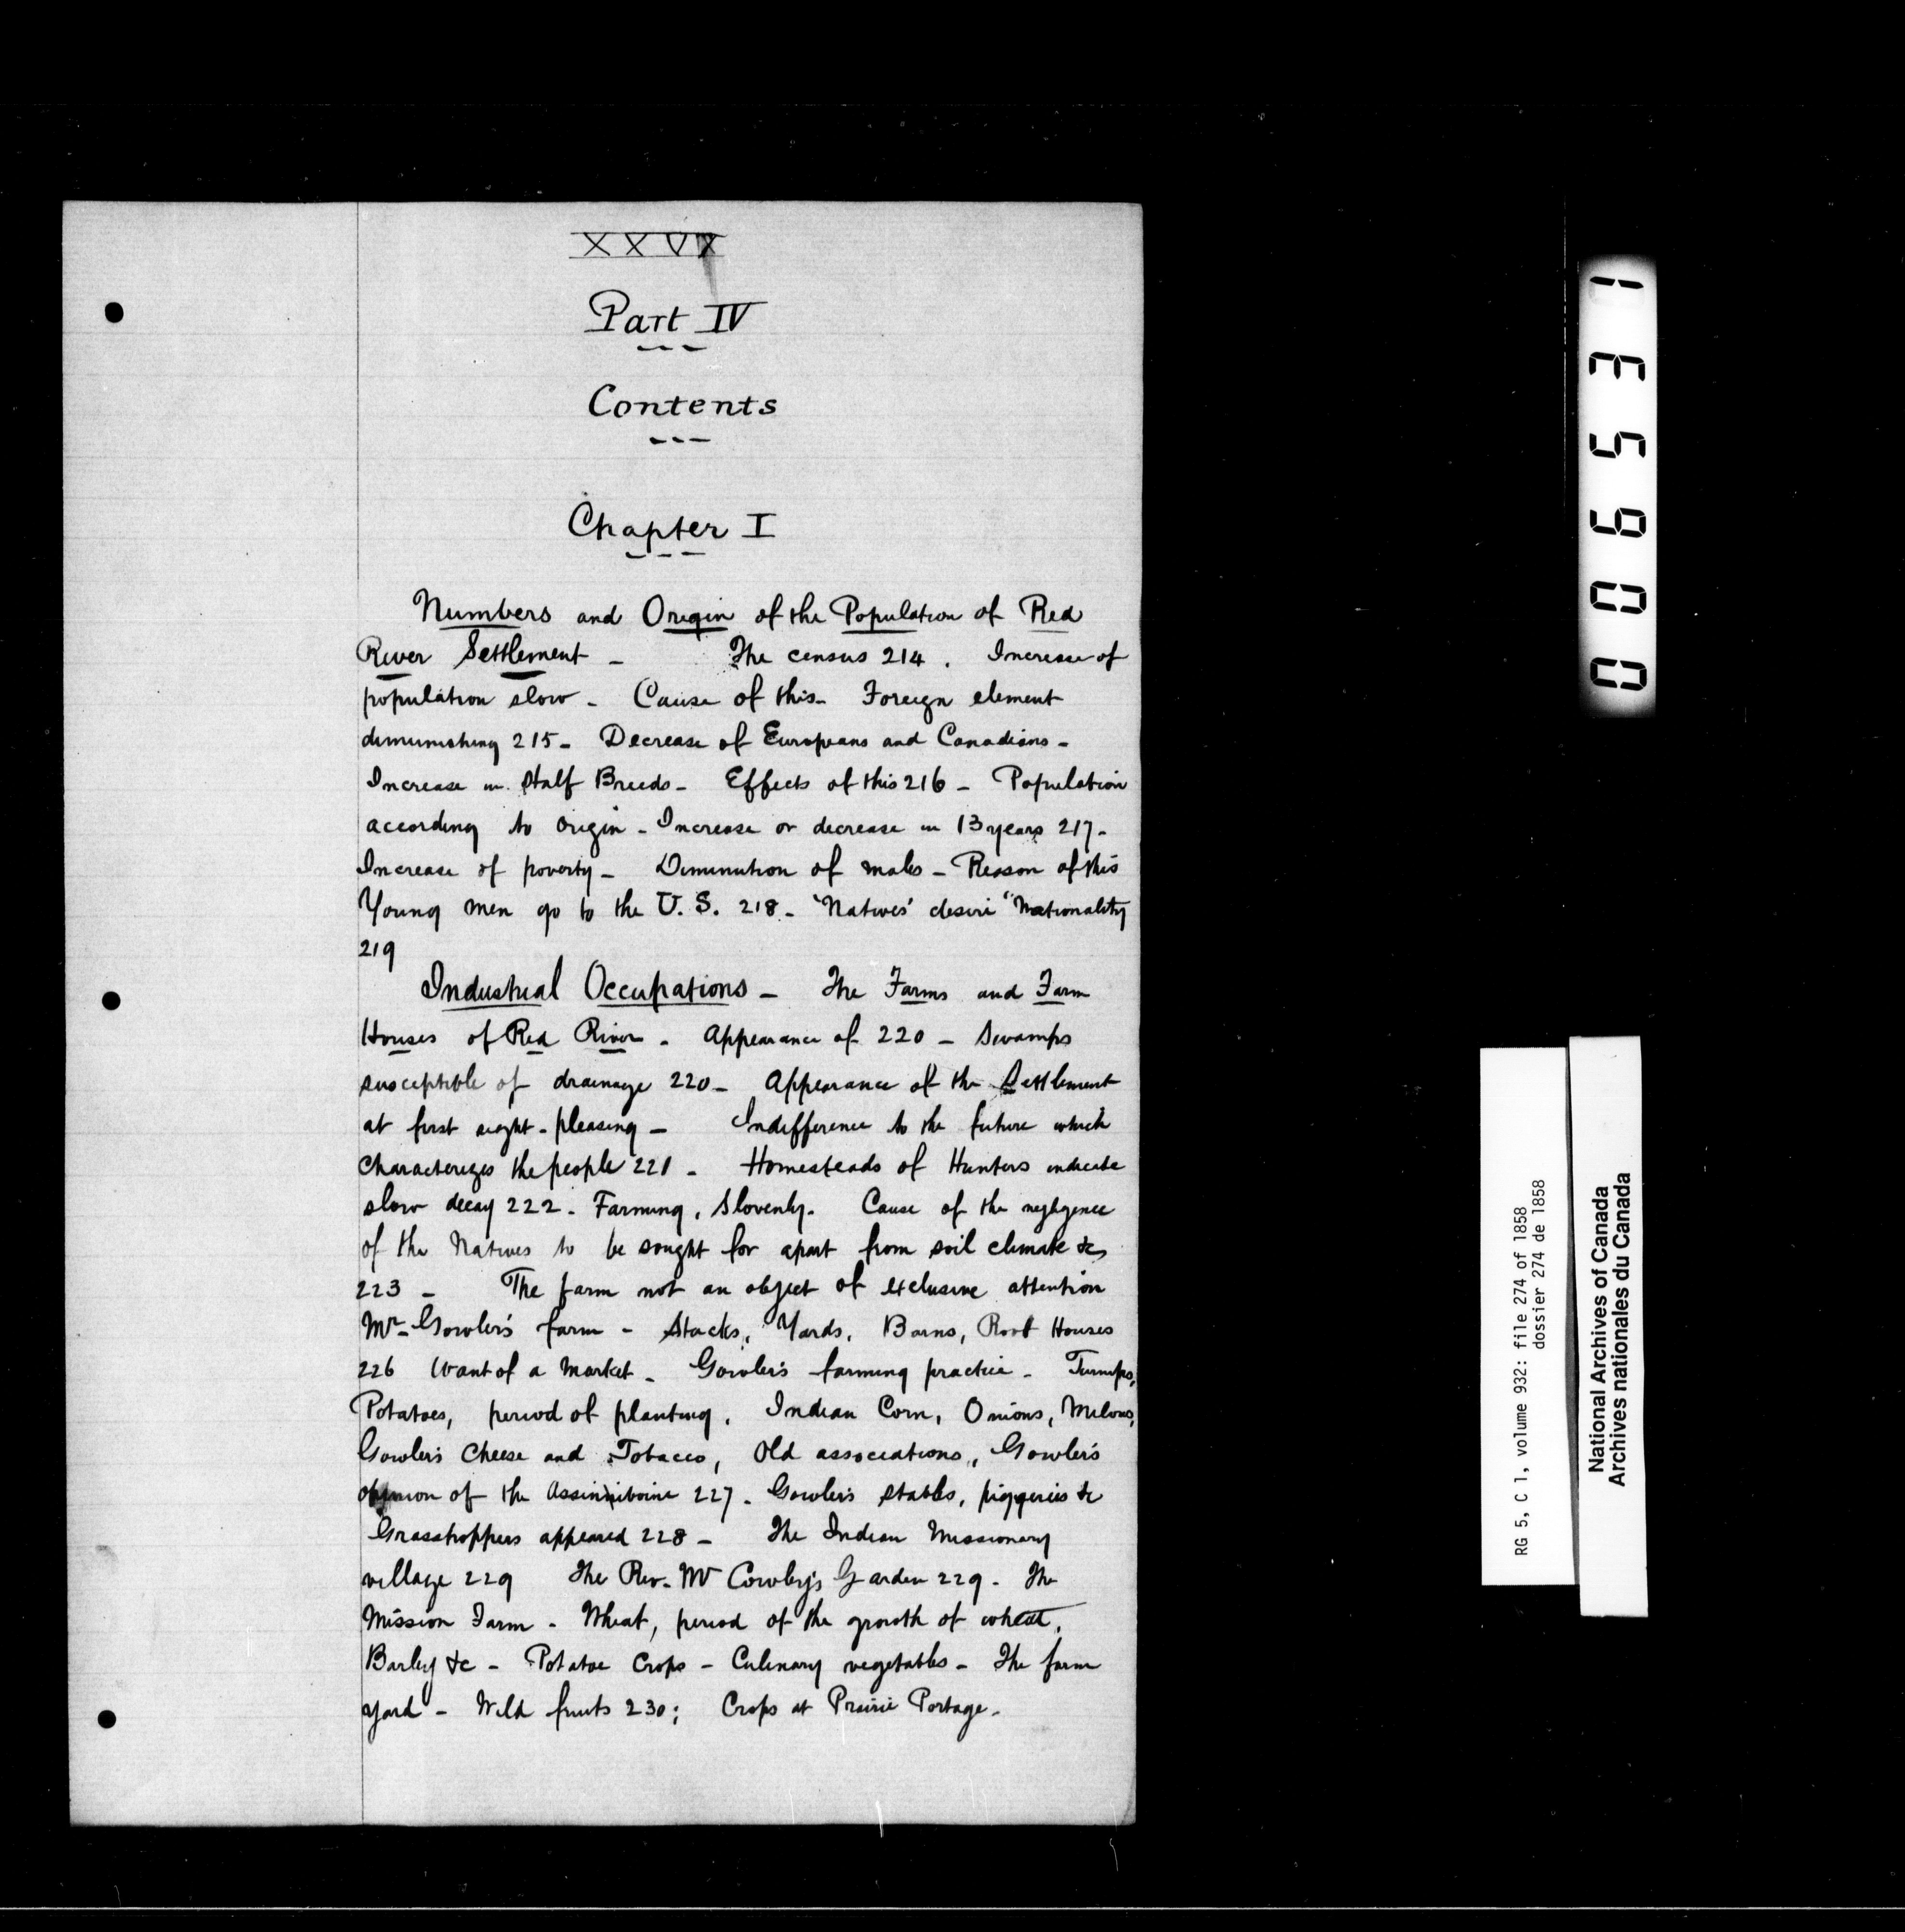 XXVI
Part IV
Contents
Chapter I
Numbers and Origin of the Population of Red
River Settlement - The census 214. Increase of
population slow - Cause of this - Foreign element
dimunishing 215 - Decrease of Europeans and Canadians -
Increase in Half Breeds - Effects of this 216 - Population
according to origin - Increase or decrease in 13 years 217 -
Increase of poverty - Diminution of males - Reason of this
Young men go to the U. S. 218 - 'Natives' desire "Nationality
219
Industrial Occupations - The Farms and Farm
Houses of Red River - Appearance of 220 - Swamps
susceptible of drainage 220 - Appearance of the Settlement
at first sight - pleasing - Indifference to the future which
characterizes the people 221 - Homesteads of Hunters indicate
slow decay 222 - Farming, Slovenly. Cause of the negligence
of the Natives to be sought for apart from soil climate &c
223 - The farm not an object of exclusive attention
Mr - Gowler's farm - Stacks, Yards, Barns, Root Houses
226 Want of a Market - Gowler's farming practice - Turnips,
Potatoes, period of planting, Indian Corn, Onions, Melons,
Gowler's Cheese and Tobacco, Old associations, Gowler's
opinion of the Assinniboine 227 - Gowler's stables, piggeries &c
Grasshoppers appeared 228 - The Indian Missionary
village 229 The Rev. Mr Cowley's Garden 229 - The
Mission Farm - Wheat, period of the growth of wheat,
Barley &c - Potatoe Crops - Culinary vegetables - The farm
yard - Wild fruits 230; Crops at Prairie Portage -
006531
RG 5, C 1, volume 932: file 274 of 1858
dossier 274 de 1858
National Archives of Canada
Archives nationales du Canada